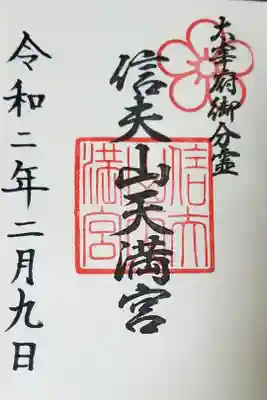 太宰府御分霊
信夫山天満宮
令和二年二月九日